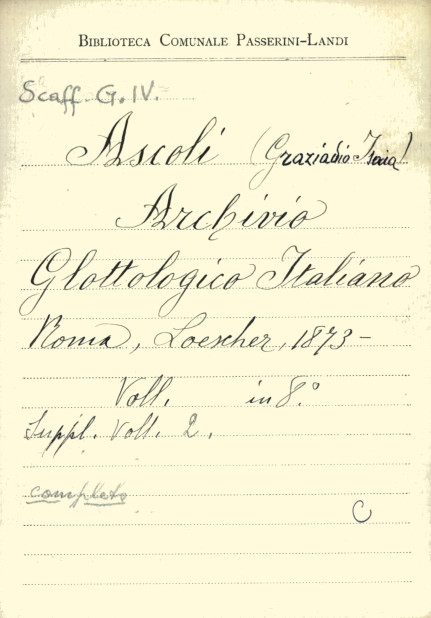 Biblioteca Comunale Passerini-Landi
Scaff. G. IV.
Ascoli (Graziadio Isaia)
Archivio
Glottologico Italiano
Roma, Loescher, 1873-
Voll. in 8°.
Suppl. Voll. 2.
completo
C